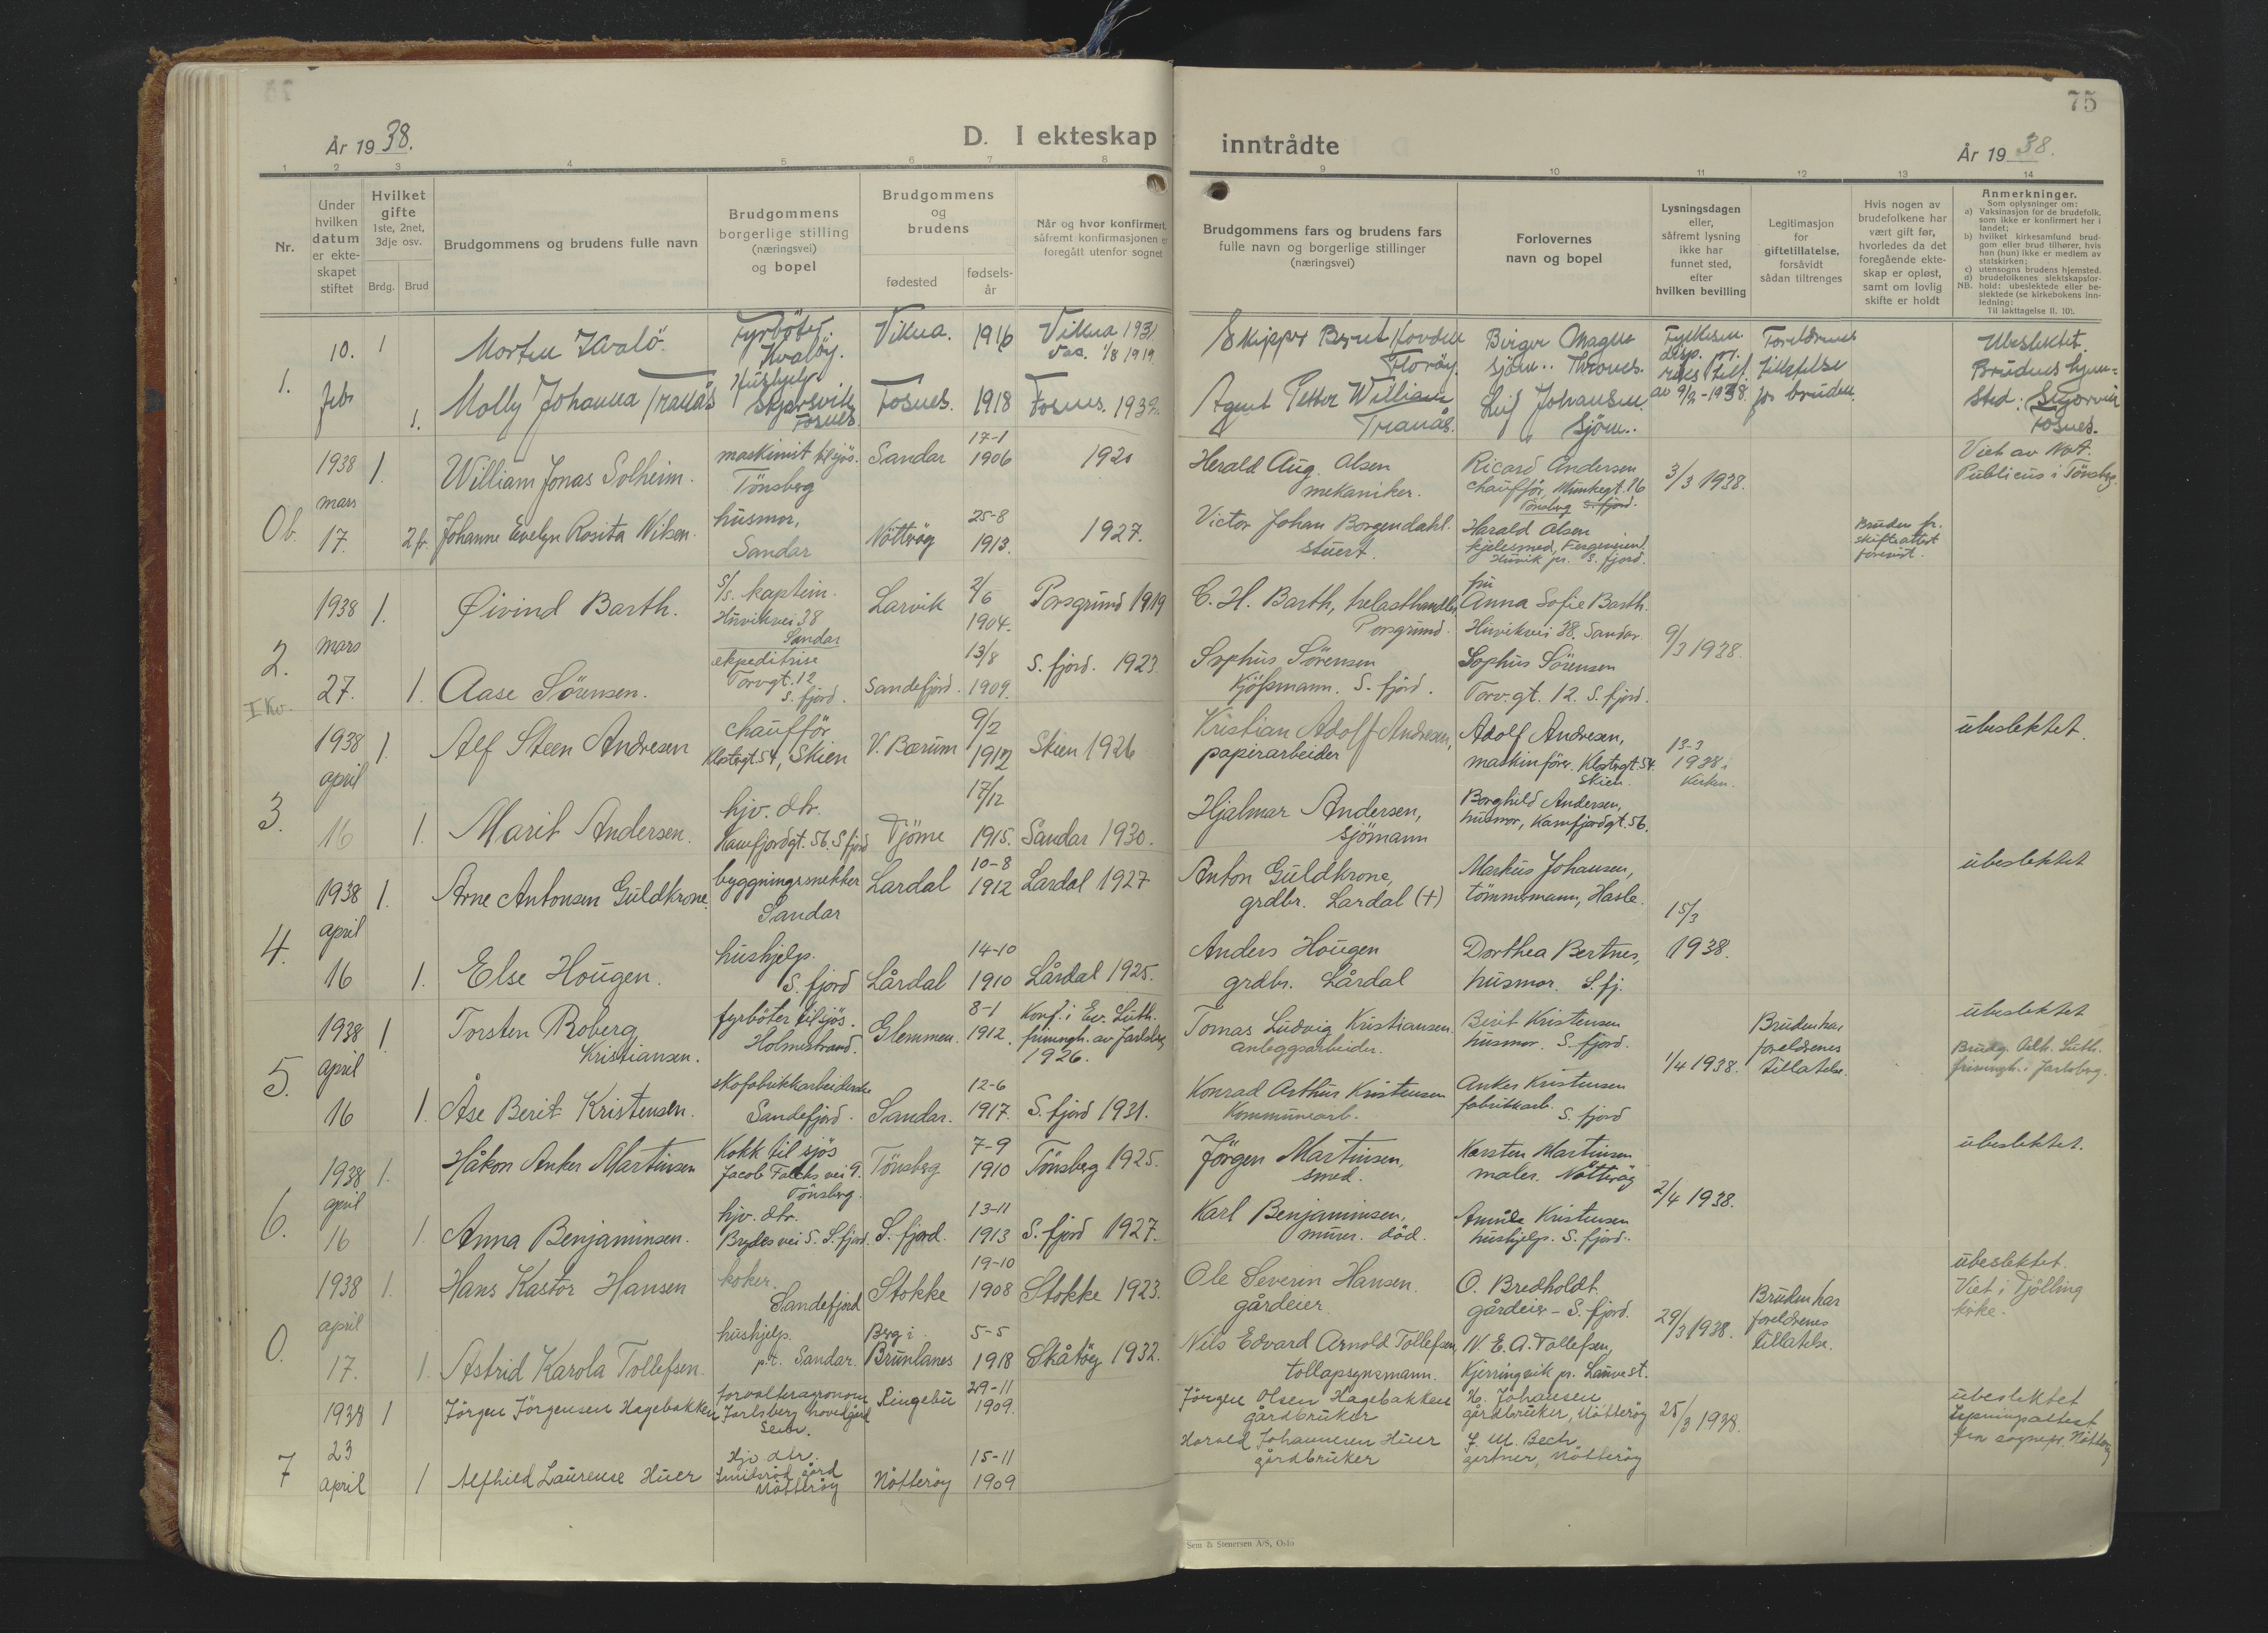 75
År 19 38.
D. I ekteskap inntrådte
År 19 38.
1 2 3 4 5 6 7 8 9 10 11 12 13 14
Nr.
Under hvilken datum er ekte-skapet stiftet
Hvilket gifte 1ste, 2net, 3dje osv.
Brdg. Brud
Brudgommens og brudens fulle navn
Brudgommens borgerlige stilling (næringsvei) og bopel
Brudgommens og brudens
fødested
fødsels-år
Når og hvor konfirmert, såfremt konfirmasjonen er foregått utenfor sognet
Brudgommens fars og brudens fars fulle navn og borgerlige stillinger (næringsvei)
Forlovernes navn og bopel
Lysningsdagen eller, såfremt lysning ikke har funnet sted, efter hvilken bevilling
Legitimasjon for giftetillatelse, forsåvidt sådan tiltrenges
Hvis nogen av brudefolkene har vært gift før, hvorledes da det foregående ekte-skap er opløst, samt om lovlig skifte er holdt
Anmerkninger.
Som oplysninger om:
a) Vaksinasjon for de brudefolk, som ikke er konfirmert her i landet;
b) hvilket kirkesamfund brud-gom eller brud tilhører, hvis han (hun) ikke er medlem av statskirken;
c) utensogns brudens hjemsted.
d) brudefolkenes slektskapsfor-
NB. hold: ubeslektede eller be-slektede (se kirkebokens inn-ledning:
Til iakttagelse II. 10).
1.
10. febr
1
Morten Kvalö.
Fyrböter. Kvalöy.
Vikna. 1916
Vikna 1931
Vac. 1/8 1919
Skipper Bernt Hovden
Florøy.
Birger Magnus
sjöm..
Ubeslektet.
1.
Molly Johanna Tranås
Hushjelp
Skjærsvik Fosnes
Fosnes. 1918
Fosnes. 1932.
Agent Petter William
Tranås.
Leif Johansen.
Sjöm..
av 9/2-1938.
Foreldrenes tillatelse for bruden.
Brudens hjem-
sted:
Fosnes.
0 b.
1938 mars 17.
1.
William Jonas Solheim.
maskinist til sjös.
Tönsberg
Sandar
17-1
1906
1920
Herald Aug. Olsen
mekaniker.
Ricard Andersen
chaufför, Munkegt. 16
Tönsberg
3/3 1938.
Viet av Not.
Publicus i Tönsbg.
2 fr.
Johanne Evelyn Rosita Nilsen.
husmor,
Sandar
Nötteröy
25-8
1913.
1927.
Victor Johan Borgendahl.
stuert.
Harald Olsen
kjelesmed,
Huvik pr. S. fjord.
Bruden fr.
skifteattest
forevist.
2.
I Kv.
1938 mars 27.
1.
Øivind Barth.
S/s. kaptein.
Huvikvei 38
Sandar
Larvik
2/6
1904.
Porsgrund 1919
C. H. Barth, trelasthandler,
Porsgrund.
fru
Anna Sofie Barth.
Huvikvei 38. Sandar.
9/3 1938.
1.
Aase Sörensen.
ekpeditrise
Torvgt. 12
S. fjord.
Sandefjord.
13/8
1909.
S. fjord. 1923
Sophus Sörensen
Kjöpmann. S. fjord.
Sophus Sörensen
Torv. gt. 12. S. fjord.
3.
1938 april 16
1.
Alf Steen Andresen
chaufför
Klostergt. 54, Skien
V. Bærum
9/2
1912
Skien 1926
Kristian Adolf Andresen,
papirarbeider
Adolf Andresen,
maskinförer. Klostergt. 54.
Skien.
13-3
1938 i
Kirken.
ubeslektet.
1.
Marit Andersen.
hjv. dtr.
Kamfjordgt. 56. S fjord
Tjöme
17/12
1915.
Sandar 1930.
Hjalmar Andersen,
sjömann
Borghild Andersen,
husmor, Kamfjordgt. 56.
4.
1938 april 16
1.
Arne Antonsen Guldkrone.
byggningssnekker
Sandar
Lardal
10-8
1912
Lardal 1927
Anton Guldkrone,
grdbr. Lardal (+)
Markus Johansen,
tömmermann, Hasle.
15/3
1938.
ubeslektet
1.
Else Hougen.
hushjelp.
S. fjord
Lårdal
14-10
1910
Lårdal 1925.
Anders Hougen
grdbr. Lårdal
Dorthea Bertnes,
husmor. S. fj.
5.
1938 april 16
1
Torsten Roberg
Kristiansen.
fyrböter til sjös.
Holmestrand.
Glemmen.
8-1
1912.
Konf. i Ev. Luth.
frimngh. av Jarlsberg
1926.
Tomas Ludvig Kristiansen.
anleggsarbeider.
Berit Kristensen
husmor. S. fjord.
1/4 1938.
Bruden har
foreldrenes
tillatelse.
ubeslektet
Brudg. Luth.
frimngh. i Jarlsberg.
1.
Åse Berit Kristensen.
skofabrikkarbeiderske
Sandefjord.
Sandar.
12-6
1917.
S. fjord 1931.
Konrad Arthur Kristensen
Kommunearb.
Anker Kristensen
fabrikkarb.
S. fjord
6.
1938 april 16
1.
Håkon Anker Martinsen
Kokk til sjös
Jacob Falchs vei 9.
Tönsberg.
Tönsberg
7-9
1910
Tönsberg 1925.
Jörgen Martinsen,
smed.
Karsten Martinsen
maler. Nötteröy
2/4 1938.
ubeslektet.
1.
Anna Benjaminsen.
hjv. dtr.
Brydes vei 5. S. fjord.
S. fjord.
13-11
1913
S. fjord 1927.
Karl Benjaminsen,
murer. död.
Kristensen
hushjelp. S. fjord.
0.
1938 april 17.
1.
Hans Kastor Hansen
koker.
Sandefjord
Stokke
19-10
1908
Stokke 1923.
Ole Severin Hansen.
gårdeier.
O. Bredholdt
gårdeier - S. fjord.
29/3 1938.
Bruden har
foreldrenes
tillatelse.
ubeslektet.
Viet i Tjölling
kirke.
1.
Astrid Karola Tollefsen.
hushjelp.
p.t. Sandar.
Berg i
Brunlanes
5-5
1918
Skåtöy 1932.
Nils Edvard Arnold Tollefsen,
tollopsynsmann.
N. E. A. Tollefsen,
Kjerringvik pr. Lauve st.
7
1938
23
april
1
Jörgen Jörgensen Hagebakken
forvalteragronom
Jarlsberg hovedgård
Sem.
Ringebu
29-11
1909.
Jörgen Olsen Hagebakken
gårdbruker
H. Johansen
gårdbruker, Nötteröy
25/3 1938.
ubeslektet
Lysningsattest
fra sognepr. Nötteröy
1
Alfhild Laurense Huer
Hjv dtr.
Smidsröd gård
Nötteröy
Nötteröy
15-11
1909
Harald Johannesen Huer
gårdbruker
F. M. Bech
gartner, Nötteröy
Sem & Stenersen A/S, Oslo